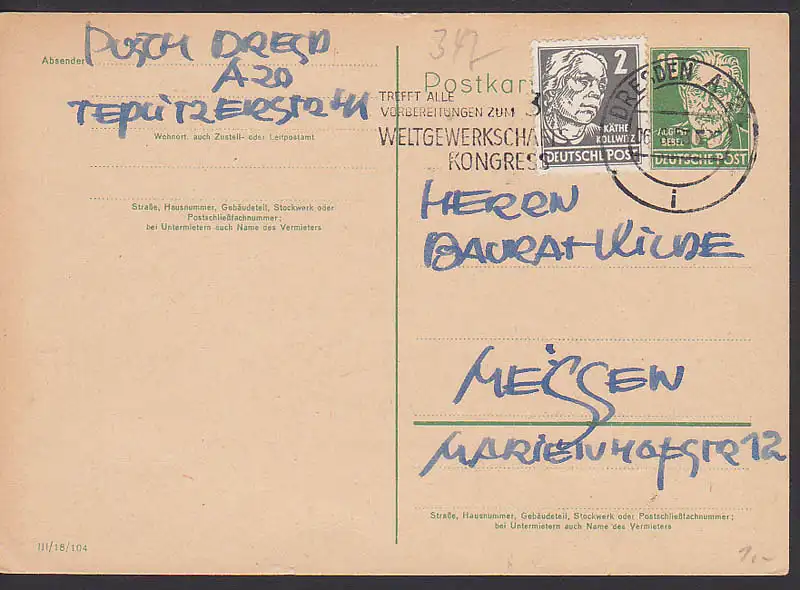 Absender
PUSCH DRESD
A 20
TEPLITZERSTR 44
Wohnort, auch Zustell- oder Leitpostamt
Straße, Hausnummer, Gebäudeteil, Stockwerk oder
Postschließfachnummer;
bei Untermietern auch Name des Vermieters
III/18/104
342
Postkar
TREFFT ALLE
VORBEREITUNGEN ZUM 3
WELTGEWERKSCHAF
KONGRESS
2
KÄTHE
KOLLWITZ
DEUTSCHE POST
10
AUGUST
BEBEL
DEUTSCHE POST
DRESDEN A
i
HERRN
BAURAT WILDE
MEISSEN
MARIENHOFSTR 12
Straße, Hausnummer, Gebäudeteil, Stockwerk oder Postschließfachnummer;
bei Untermietern auch Name des Vermieters
1,-